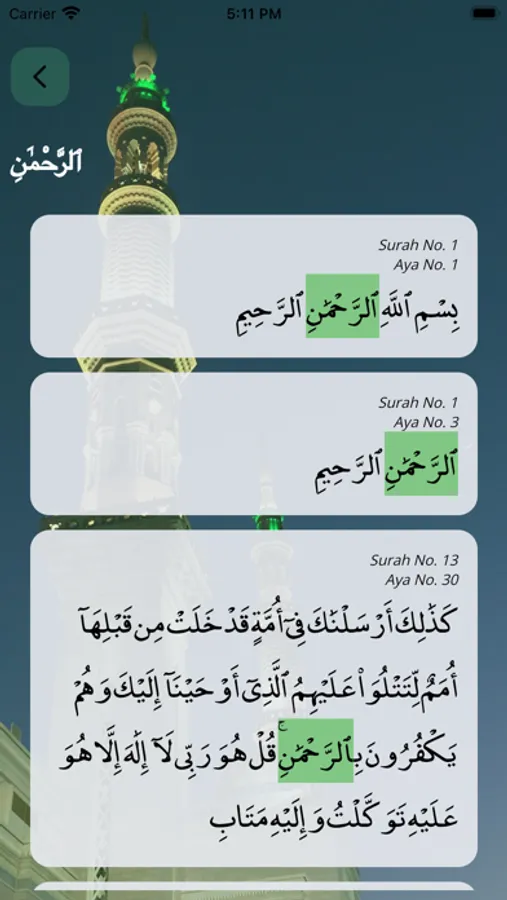 Carrier 5:11 PM
ٱلرَّحْمَٰنِ
Surah No. 1
Aya No. 1
بِسْمِ ٱللَّهِ ٱلرَّحْمَٰنِ ٱلرَّحِيمِ
Surah No. 1
Aya No. 3
ٱلرَّحْمَٰنِ ٱلرَّحِيمِ
Surah No. 13
Aya No. 30
كَذَٰلِكَ أَرْسَلْنَٰكَ فِىٓ أُمَّةٍ قَدْ خَلَتْ مِن قَبْلِهَآ
أُمَمٌ لِّتَتْلُوَا۟ عَلَيْهِمُ ٱلَّذِىٓ أَوْحَيْنَآ إِلَيْكَ وَهُمْ
يَكْفُرُونَ بِٱلرَّحْمَٰنِ ۚ قُلْ هُوَ رَبِّى لَآ إِلَٰهَ إِلَّا هُوَ
عَلَيْهِ تَوَكَّلْتُ وَإِلَيْهِ مَتَابِ